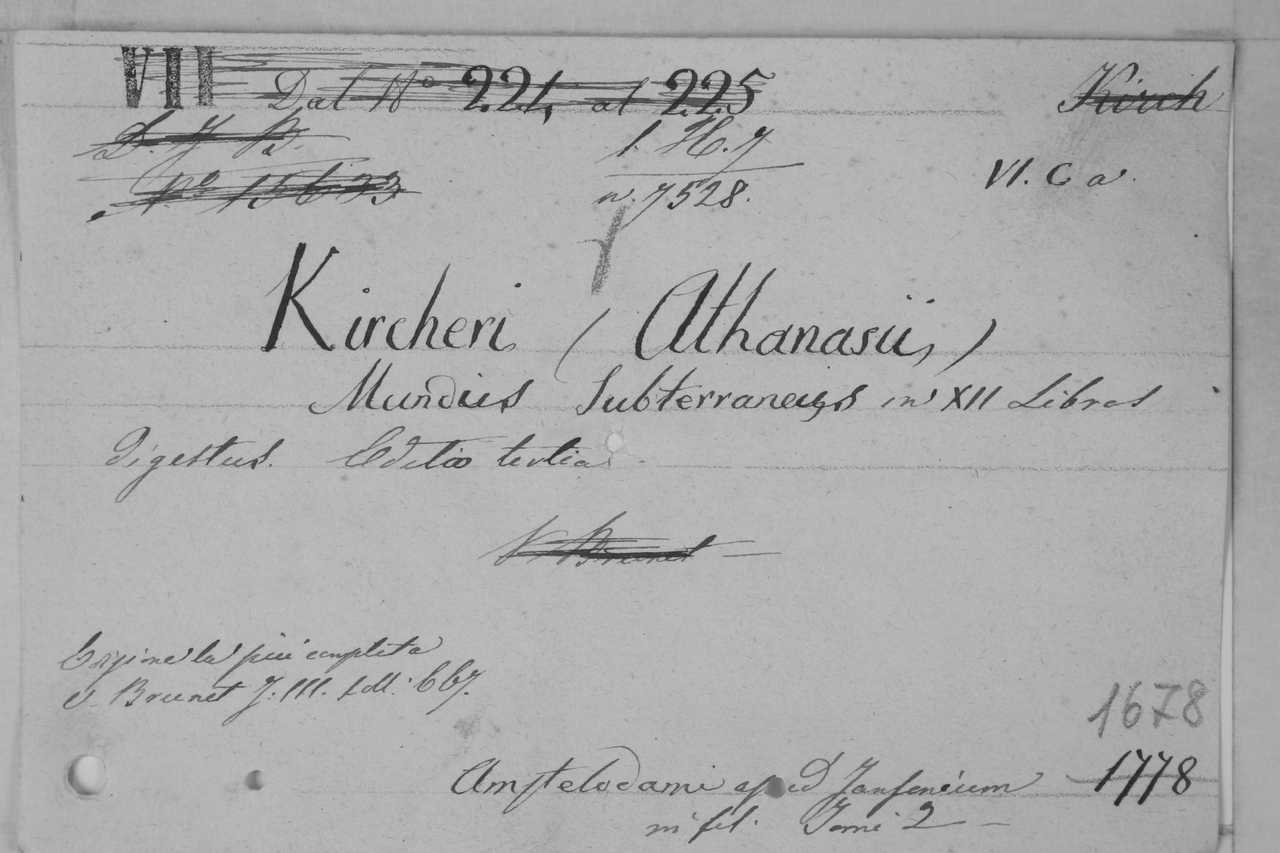 VII Dal No 224 al 225 Kirch
D. J B.
1. H. 7
No 15673
n. 7528.
VI. C a.
Kircheri (Athanasii,)
Mundus Subterraneus in XII Libros
digestus. Editio tertia.
V Brunet
Ezione la più completa
v. Brunet T. III. coll. 667.
1678
Amstelodami apud Jansenium 1778
in fol. Tomi 2